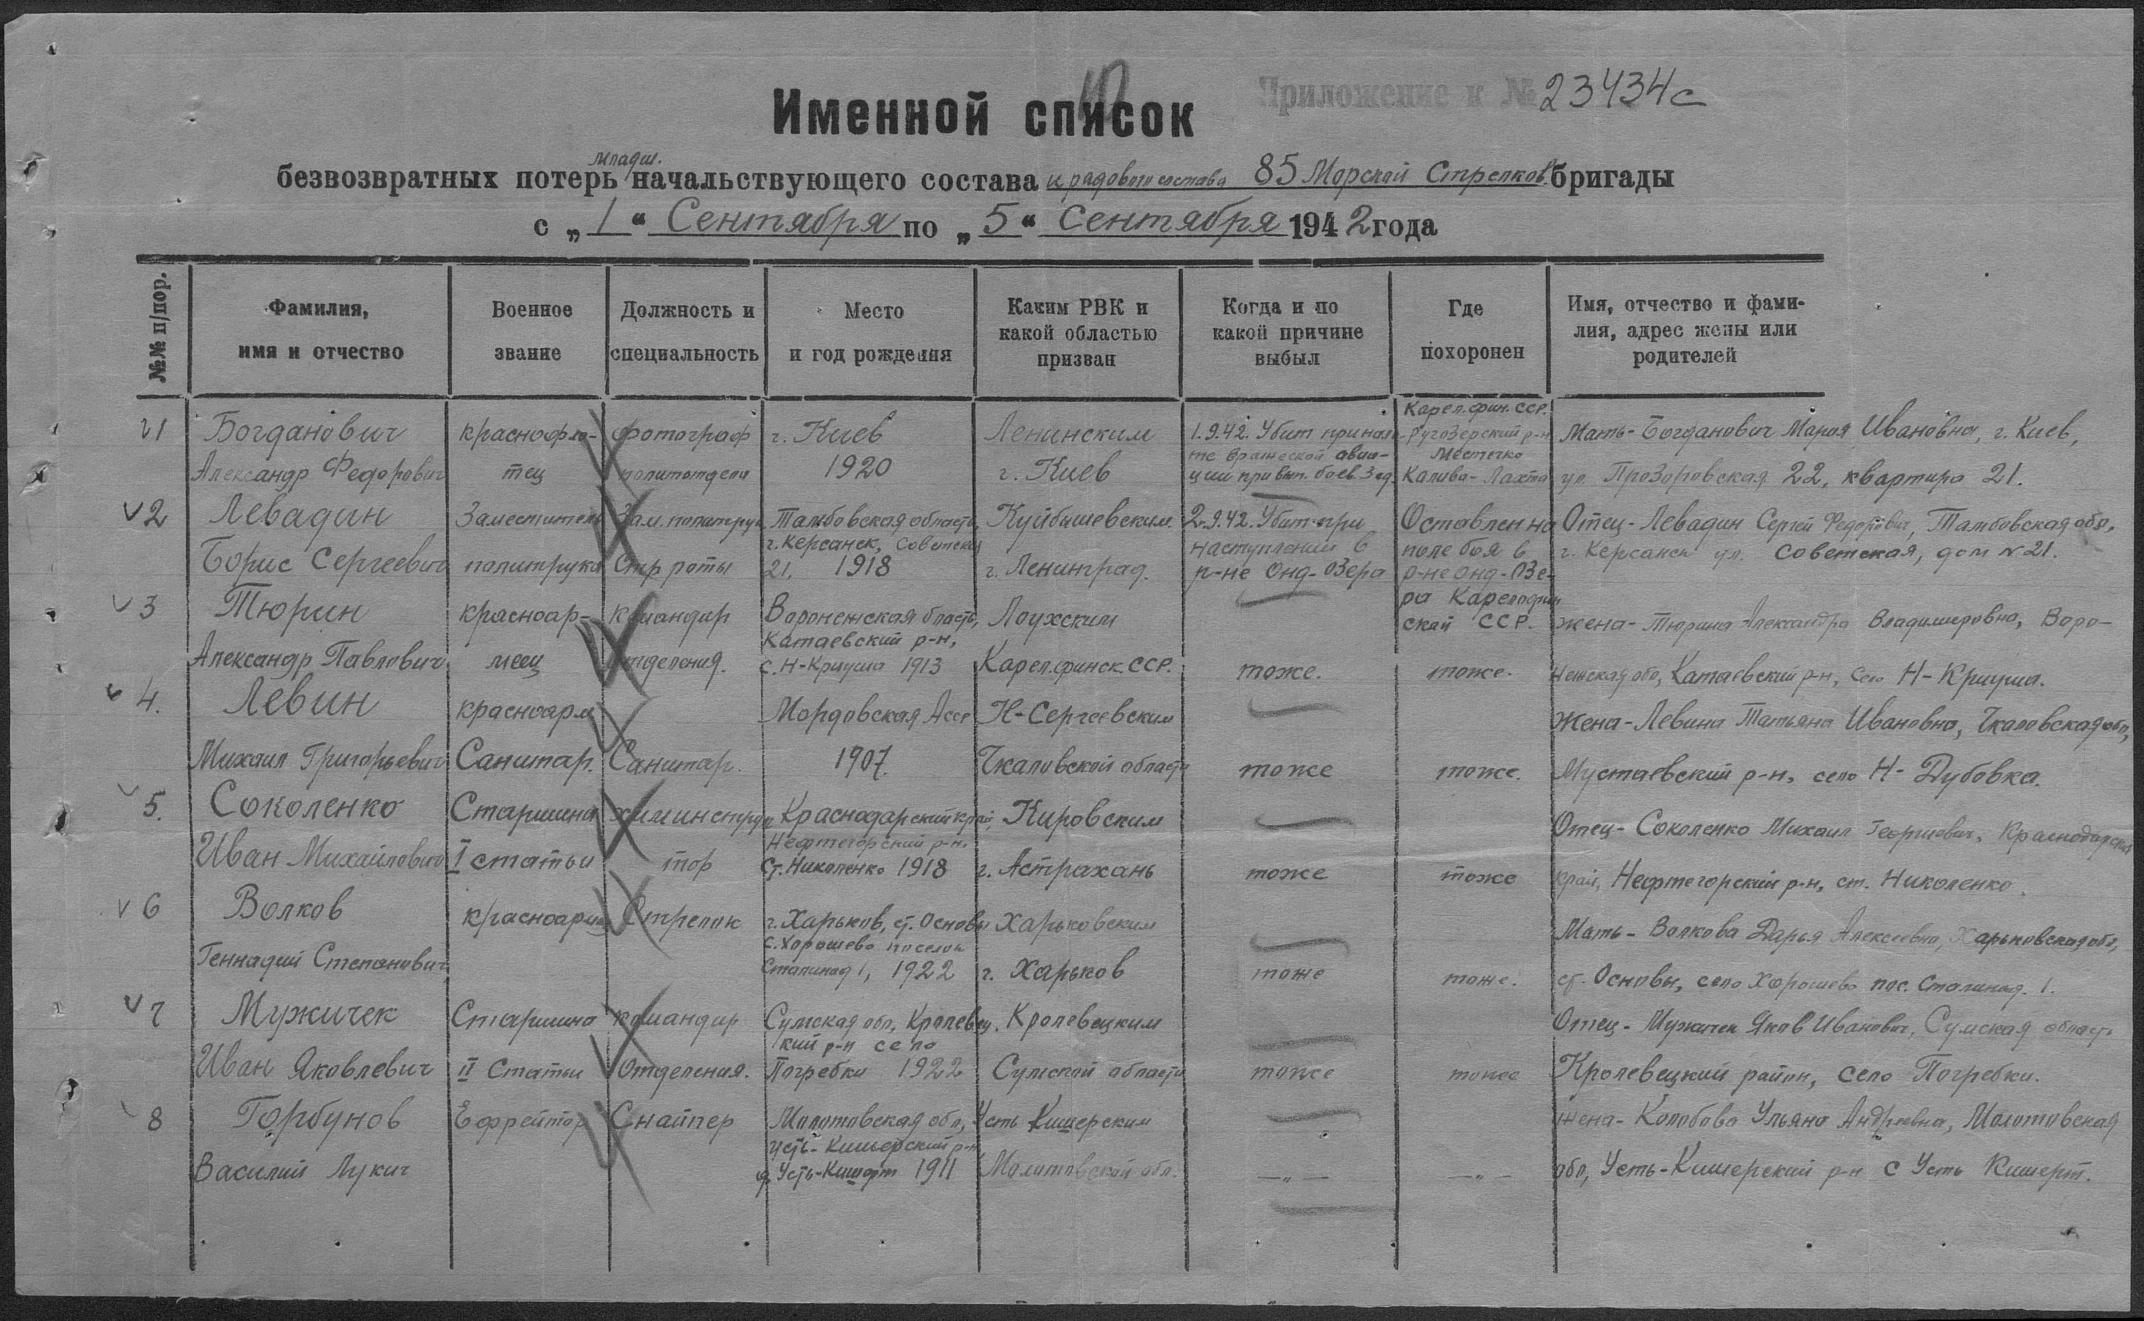 Приложение к № 23434с
10
Именной список
младш.
безвозвратных потерь начальствующего состава и рядового состава 85 Морской Стрелков. бригады
с „1“ Сентября по „5“ Сентября 1942 года
№№ п/пор.
Фамилия,
имя и отчество
Военное
звание
Должность и
специальность
Место
и год рождения
Каким РВК и
какой областью
призван
Когда и по
какой причине
выбыл
Где
похоронен
Имя, отчество и фами-
лия, адрес жены или
родителей
1
Богданович
Александр Федорович
краснофло-
тец
фотограф
политотдела
г. Киев
1920
Ленинским
г. Киев
1.9.42. Убит при нале-
те вражеской авиа-
ции при вып. боев. зад.
Карел.фин. ССР.
Ругозерский р-н
местечко
Калива-Лахта
Мать - Богданович Мария Ивановна, г. Киев,
ул. Прозоровская 22, квартира 21.
2
Левадин
Борис Сергеевич
Заместитель
политрука
Зам. политрук
Стр роты
Тамбовская область,
г. Керсанск, Советская
21, 1918
Куйбышевским
г. Ленинград.
2.9.42. Убит при
наступлении в
р-не Онд-Озера
Оставлен на
поле боя в
р-не Онд-Озе-
ра Карелофин
ской ССР.
Отец - Левадин Сергей Федорович, Тамбовская обл,
г. Керсанск ул. Советская, дом №21.
3
Тюрин
Александр Павлович
красноар-
меец
командир
отделения.
Воронежская бласть,
Катаевский р-н,
с. Н-Криуша 1913
Лоухским
Карел.финск.ССР.
тоже.
тоже.
жена - Тюрина Александра Владимировна, Воро-
нежская обл, Катаевский р-н, село Н-Криуша.
4.
Левин
Михаил Григорьевич
красноарм
Санитар.
Санитар.
Мордовская Асср
1907.
Н-Сергеевским
Чкаловской области
тоже
тоже.
Жена - Левина Татьяна Ивановна, Чкаловская обл,
Мустаевский р-н, село Н-Дубовка.
5.
Соколенко
Иван Михайлович
Старшина
I статьи
химинструк
тор
Краснодарский край,
Нефтегорский р-н.
Ст. Николенко 1918
Кировским
г. Астрахань
тоже
тоже
Отец - Соколенко Михаил Георгиевич, Краснодарский
край, Нефтегорский р-н, ст. Николенко.
6
Волков
Геннадий Степанович
красноармец
Стрелок
г. Харьков, ст. Основы
с. Хорошево поселок
Сталинад 1, 1922
Харьковским
г. Харьков
тоже
тоже.
Мать - Волкова Дарья Алексеевна, Харьковская обл,
ст. Основы, село Хорошево пос. Сталинад. 1.
7
Мужичек
Иван Яковлевич
Старшина
II Статьи
командир
Отделения.
Сумская обл, Кролевец.
кий р-н село
Погребки 1922
Кролевецким
Сумской области
тоже
тоже
Отец - Мужичек Яков Иванович, Сумская область
Кролевецкий район, село Погребки.
8
Горбунов
Василий Лукич
Ефрейтор
Снайпер
Молотовская обл,
усть-Кишерский р-н
Усть-Кишерт 1911
Усть Кишерским
Молотовской обл.
—„—
—„—
жена - Колобова Ульяна Андреевна, Молотовская
обл, Усть-Кишерский р-н с Усть Кишерт.